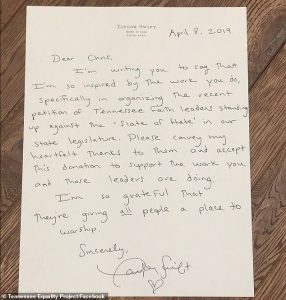 TAYLOR SWIFT
April 8, 2019
Dear Chris,
I'm writing you to say that
I'm so inspired by the work you do,
specifically in organizing the recent
petition of Tennessee faith leaders standing
up against the 'Slate of Hate' in our
state legislature. Please convey my
heartfelt thanks to them and accept
this donation to support the work you
and those leaders are doing.
I'm so grateful that
they're giving all people a place to
worship.
Sincerely,
Taylor Swift
© Tennessee Equality Project/Facebook